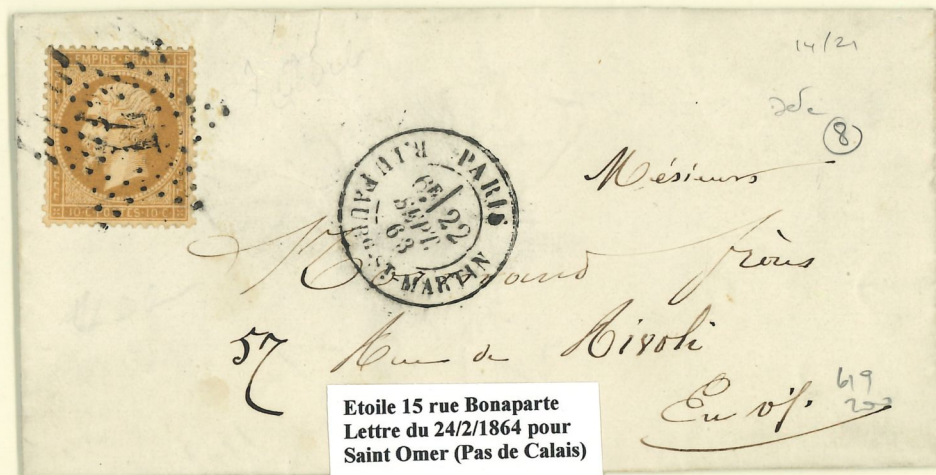 EMPIRE FRANC
11
10 C POSTES 10 C
14/21
8
PARIS
R. DU FAUB. ST MARTIN
6E 22
SEPT
63
Mésieurs
frères
57 Rue de Rivoli
En vil.
619
200
Etoile 15 rue Bonaparte
Lettre du 24/2/1864 pour
Saint Omer (Pas de Calais)